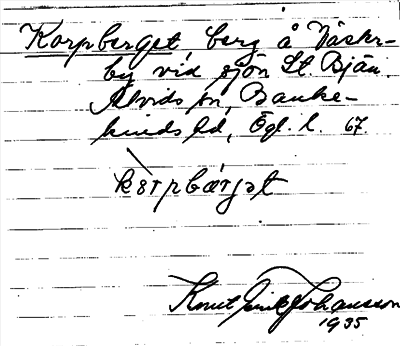 Korpberget, berg å Väskr-
by vid sjön St. Bjän.
Alvids sn, Banke-
kinds hd, Ögl. l. 67.
kɔrpbærjət
Knut Erik Johansson
1935